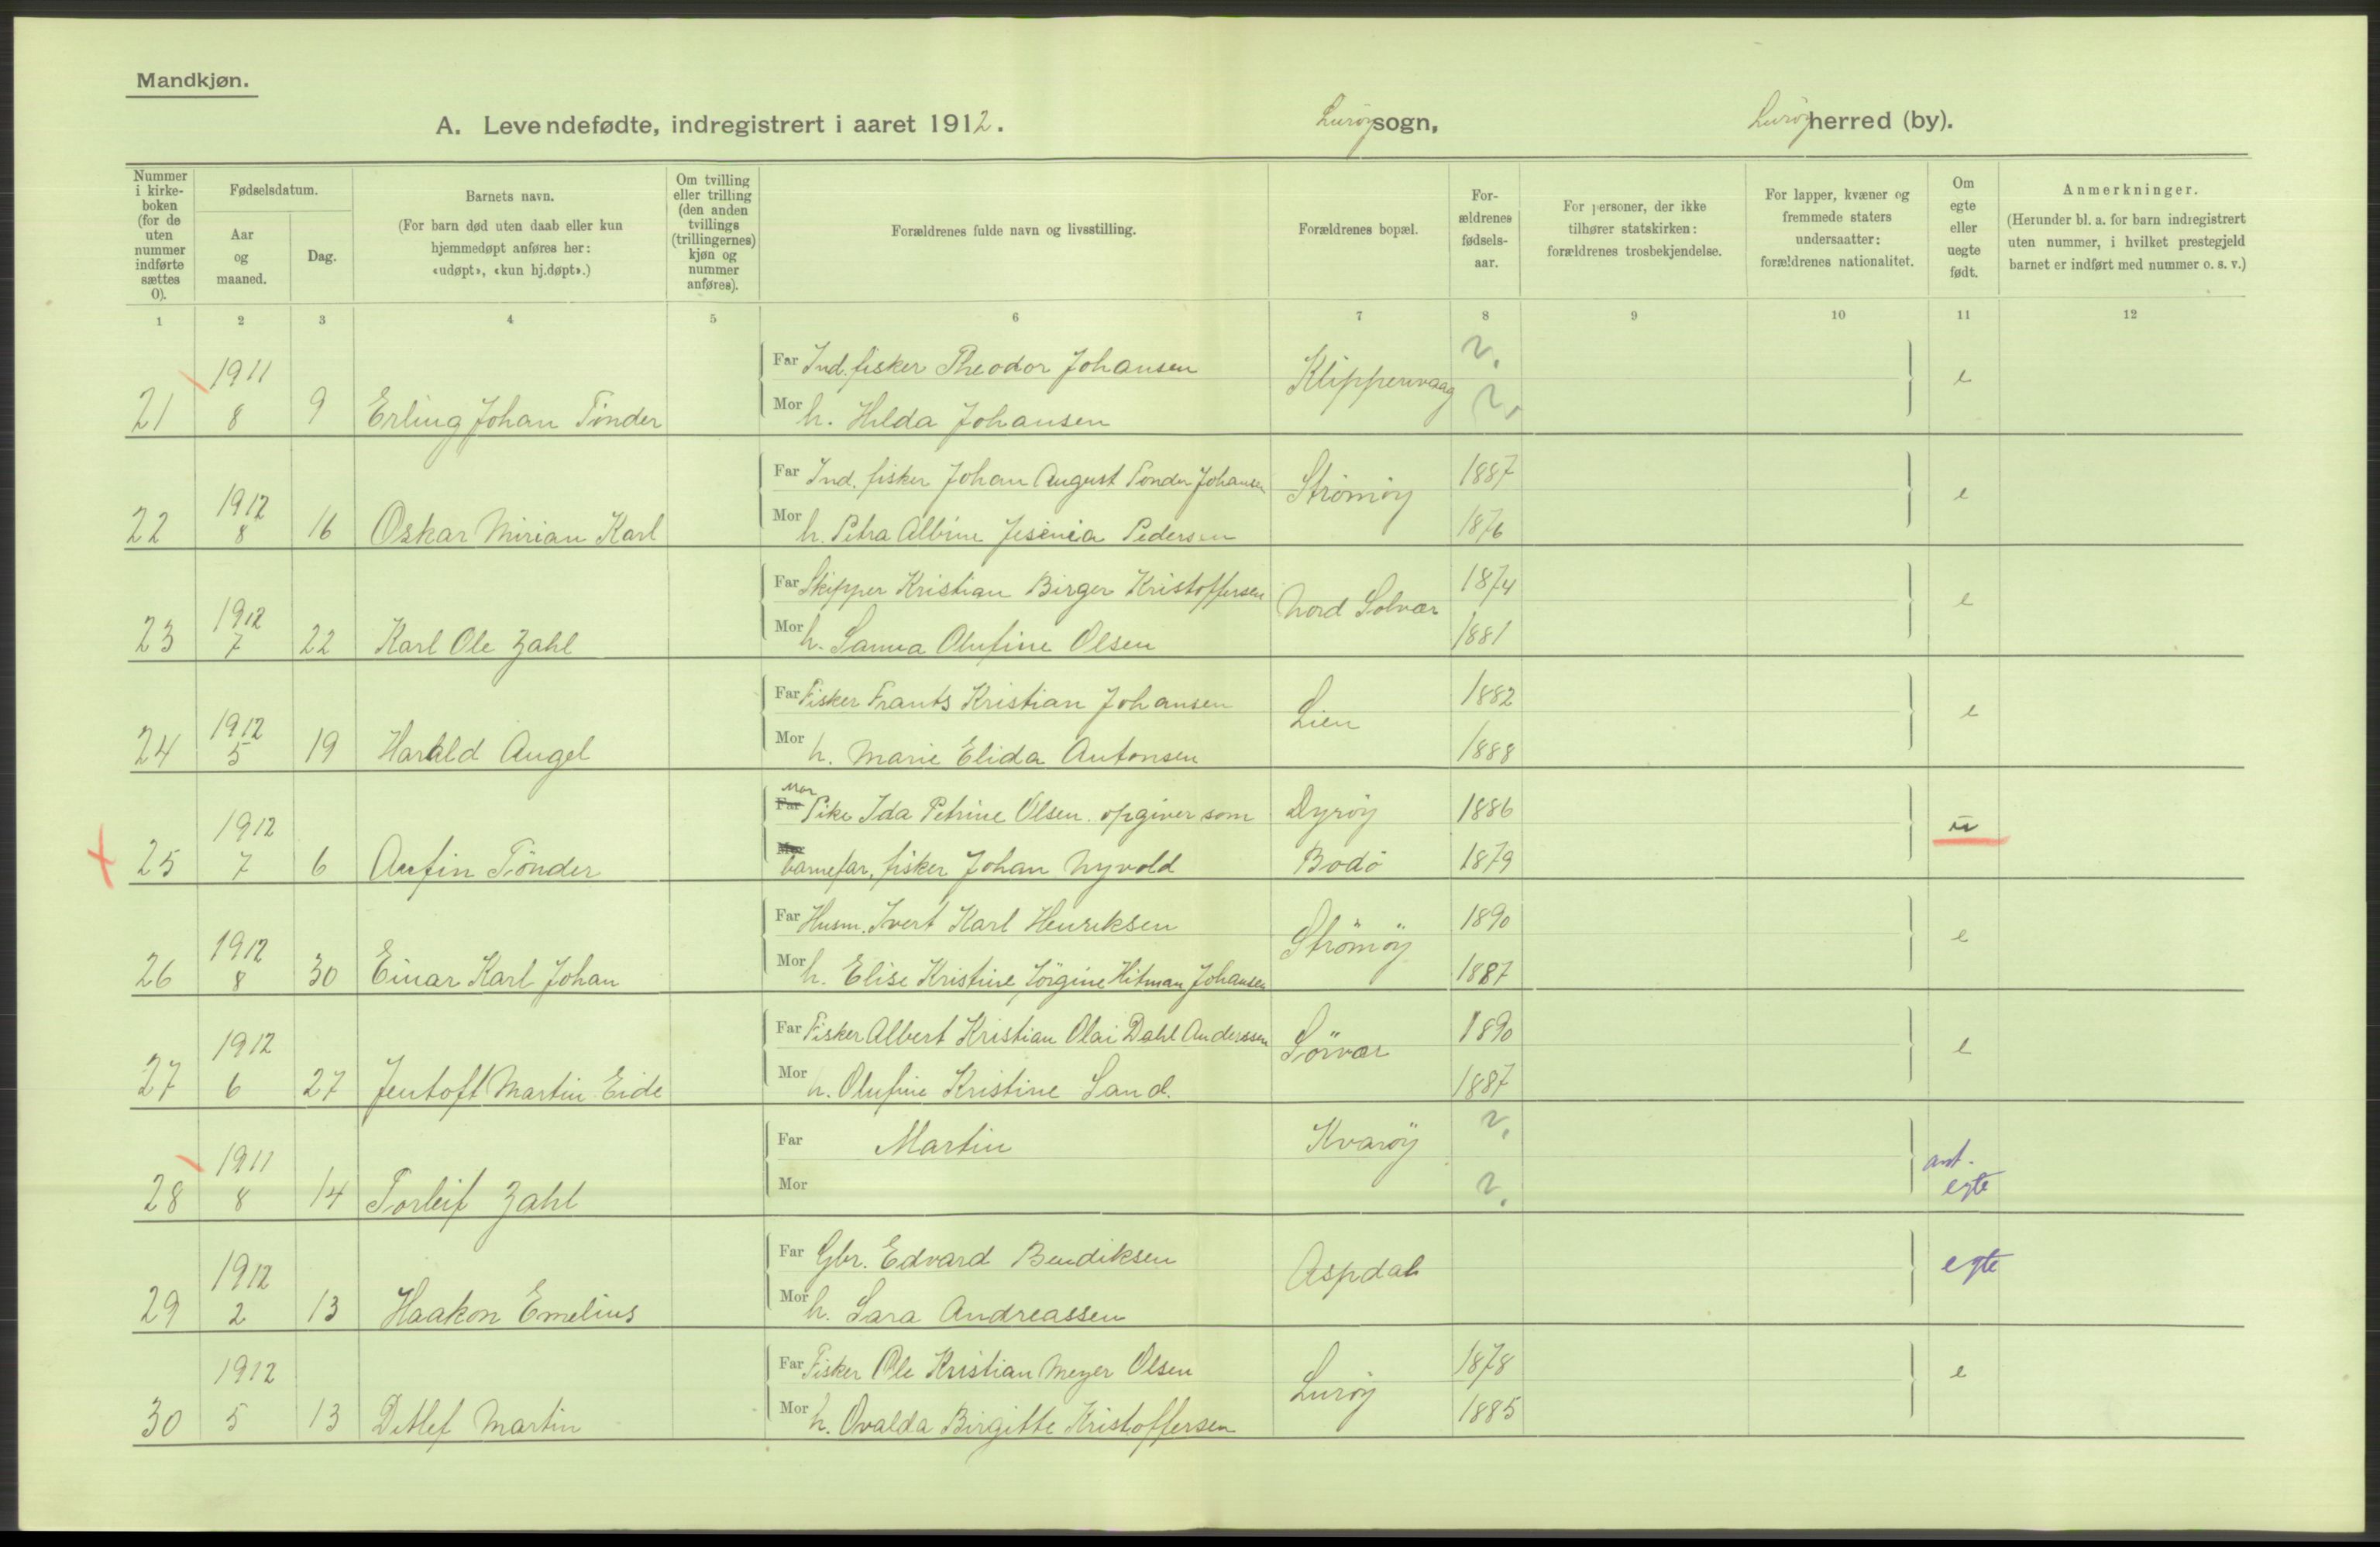 Mandkjøn.
A. Levendefødte, indregistrert i aaret 1912.
Lurøy sogn,
Lurøy herred (by).
Nummer i kirkeboken (for de uten nummer indførte sættes 0).
Fødselsdatum.
Aar og maaned.
Dag.
Barnets navn.
(For barn død uten daab eller kun hjemmedøpt anføres her: «udøpt», «kun hj.døpt».)
Om tvilling eller trilling (den anden tvillings (trillingernes) kjøn og nummer anføres).
Forældrenes fulde navn og livsstilling.
Forældrenes bopæl.
For-ældrenes fødsels-aar.
For personer, der ikke tilhører statskirken: forældrenes trosbekjendelse.
For lapper, kvæner og fremmede staters undersaatter: forældrenes nationalitet.
Om egte eller uegte født.
Anmerkninger.
(Herunder bl. a. for barn indregistrert uten nummer, i hvilket prestegjeld barnet er indført med nummer o. s. v.)
1 2 3 4 5 6 7 8 9 10 11 12
21 1911 8 9 Erling Johan Tönder
Far Ind. fisker Theodor Johansen Klippenvaag ?. e
Mor h. Hilda Johansen ?.
22 1912 8 16 Oskar Mirian Karl
Far Ind. fisker Johan August Tonder Johansen Strömöy 1887 e
Mor h. Petra Albine Jesinia Pedersen 1876
23 1912 7 22 Karl Ole Zahl
Far Skipper Kristian Birger Kristoffersen Nord Solvær 1874 e
Mor h. Sanna Olufine Olsen 1881
24 1912 5 19 Harald Angel
Far Fisker Frants Kristian Johansen Lien 1882 e
Mor h. Marie Elida Antonsen 1888
25 1912 7 6 Anfin Tönder
Far Mor Pike Ida Petrine Olsen. opgiver som Dyröy 1886 u
Mor barnefar, fisker Johan Nyvold Bodö 1879
26 1912 8 30 Einar Karl Johan
Far Husm. Ivert Karl Henriksen Strömöy 1890 e
Mor h. Elise Kristine Jörgine Hitman Johansen 1887
27 1912 6 27 Jentoft Martin Eide
Far Fisker Albert Kristian Olai Dahl Anderssen Sörvær 1890 e
Mor h. Olufine Kristine Sand. 1887
28 1911 8 14 Torleif Zahl
Far Martin Kvaröy ?. ant. egte
Mor ?.
29 1912 2 13 Haakon Emelius
Far Gbr. Edvard Bendiksen Aspdal egte
Mor h. Sara Andreassen
30 1912 5 13 Ditlef Martin
Far Fisker Ole Kristian Meyer Olsen Luröy 1878 e
Mor h. Ovalda Birgitte Kristoffersen 1885